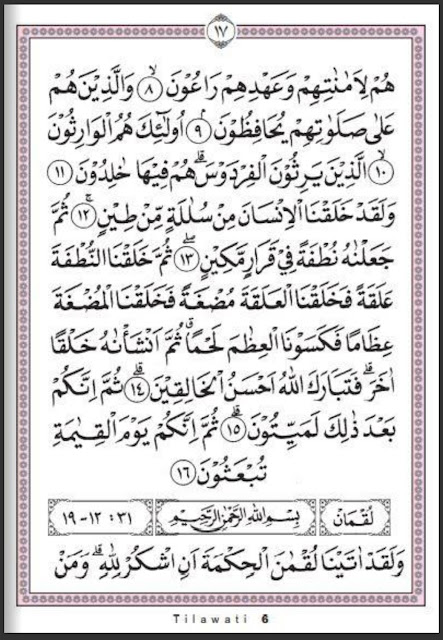 ١٧
هُمْ لِاَمٰنٰتِهِمْ وَعَهْدِهِمْ رَاعُوْنَ ۙ ﴿٨﴾ وَالَّذِيْنَ هُمْ
عَلٰى صَلَوٰتِهِمْ يُحَافِظُوْنَ ۘ ﴿٩﴾ اُولٰۤئِكَ هُمُ الْوَارِثُوْنَ
ۙ ﴿١٠﴾ الَّذِيْنَ يَرِثُوْنَ الْفِرْدَوْسَ ۗ هُمْ فِيْهَا خٰلِدُوْنَ ﴿١١﴾
وَلَقَدْ خَلَقْنَا الْاِنْسَانَ مِنْ سُلٰلَةٍ مِّنْ طِيْنٍ ۚ ﴿١٢﴾ ثُمَّ
جَعَلْنٰهُ نُطْفَةً فِيْ قَرَارٍ مَّكِيْنٍ ۖ ﴿١٣﴾ ثُمَّ خَلَقْنَا النُّطْفَةَ
عَلَقَةً فَخَلَقْنَا الْعَلَقَةَ مُضْغَةً فَخَلَقْنَا الْمُضْغَةَ
عِظَامًا فَكَسَوْنَا الْعِظٰمَ لَحْمًا ۗ ثُمَّ اَنْشَأْنٰهُ خَلْقًا
اٰخَرَ ۗ فَتَبَارَكَ اللّٰهُ اَحْسَنُ الْخَالِقِيْنَ ۗ ﴿١٤﴾ ثُمَّ اِنَّكُمْ
بَعْدَ ذٰلِكَ لَمَيِّتُوْنَ ۗ ﴿١٥﴾ ثُمَّ اِنَّكُمْ يَوْمَ الْقِيٰمَةِ
تُبْعَثُوْنَ ﴿١٦﴾
لُقْمَانْ بِسْمِ اللّٰهِ الرَّحْمٰنِ الرَّحِيْمِ ٣١ : ١٢-١٩
وَلَقَدْ اٰتَيْنَا لُقْمٰنَ الْحِكْمَةَ اَنِ اشْكُرْ لِلّٰهِ ۗ وَمَنْ
Tilawati 6